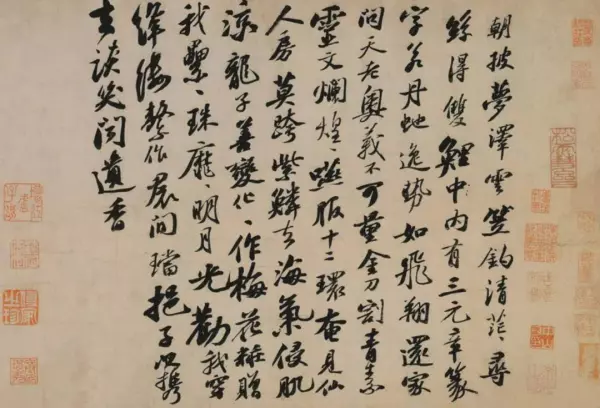 朝披夢澤雲笠釣清茫〻尋
絲得雙鯉中内有三元章篆
字若丹虵逸勢如飛翔還家
問天老奧義不可量金刀割青素
靈文爛煌〻嚥服十二環奄見仙
人房莫跨紫鱗去海氣侵肌
涼龍子善變化〻作梅花粧贈
我纍〻珠靡〻明月光勸我穿
絳縷繫作裙間璫挹子以携
去談笑聞遺香